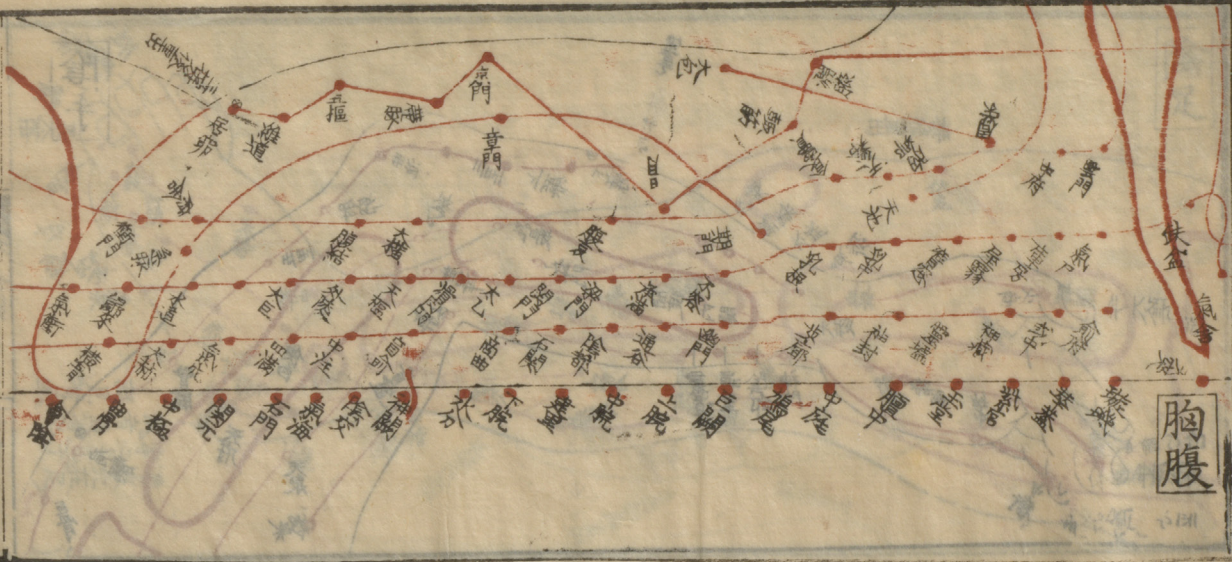 胸腹
缺盆
璇璣
華蓋
紫宮
玉堂
膻中
中庭
鳩尾
巨闕
上脘
中脘
建里
下脘
水分
神闕
陰交
氣海
石門
關元
中極
曲骨
會陰
俞府
彧中
神藏
靈墟
神封
步廊
幽門
通谷
陰都
石關
商曲
肓俞
中注
四滿
氣穴
大赫
橫骨
氣戶
庫房
屋翳
膺窗
乳中
乳根
不容
承滿
梁門
關門
太乙
滑肉門
天樞
外陵
大巨
水道
歸來
氣衝
雲門
中府
周榮
胸鄉
天谿
食竇
天池
期門
日月
腹哀
大橫
腹結
府舍
衝門
章門
京門
帶脈
五樞
維道
居髎
淵腋
輒筋
大包